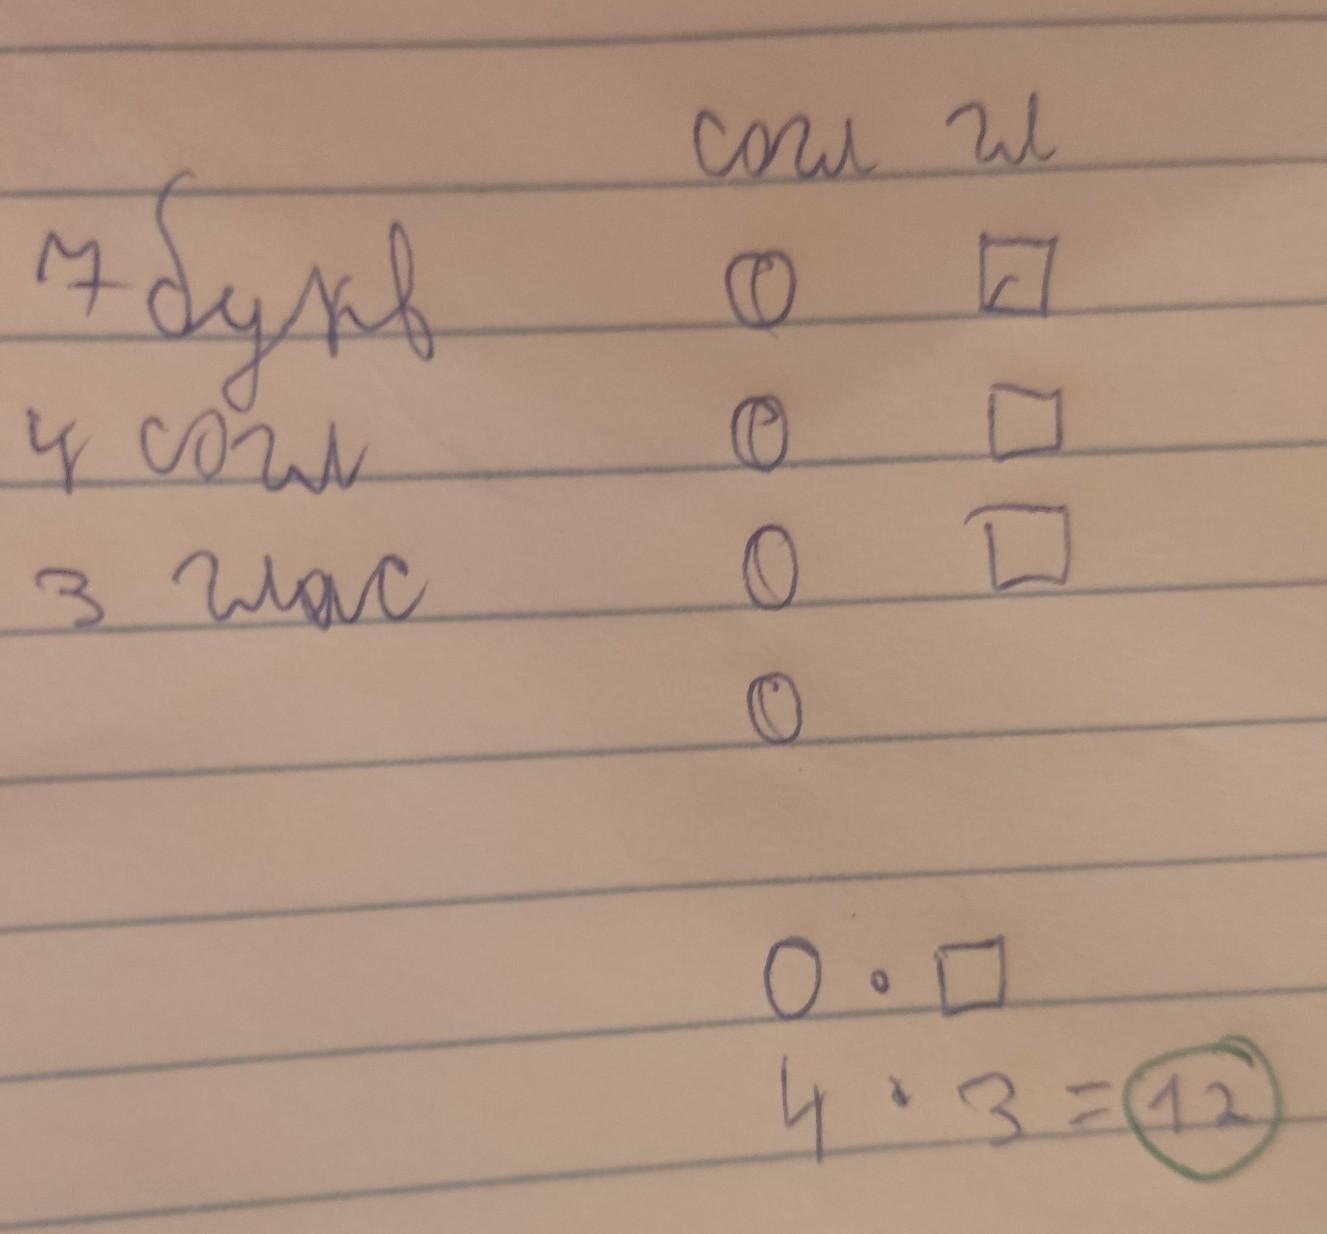 согл гл
7 букв
4 согл
3 глас
0 · □
4 · 3 = 12